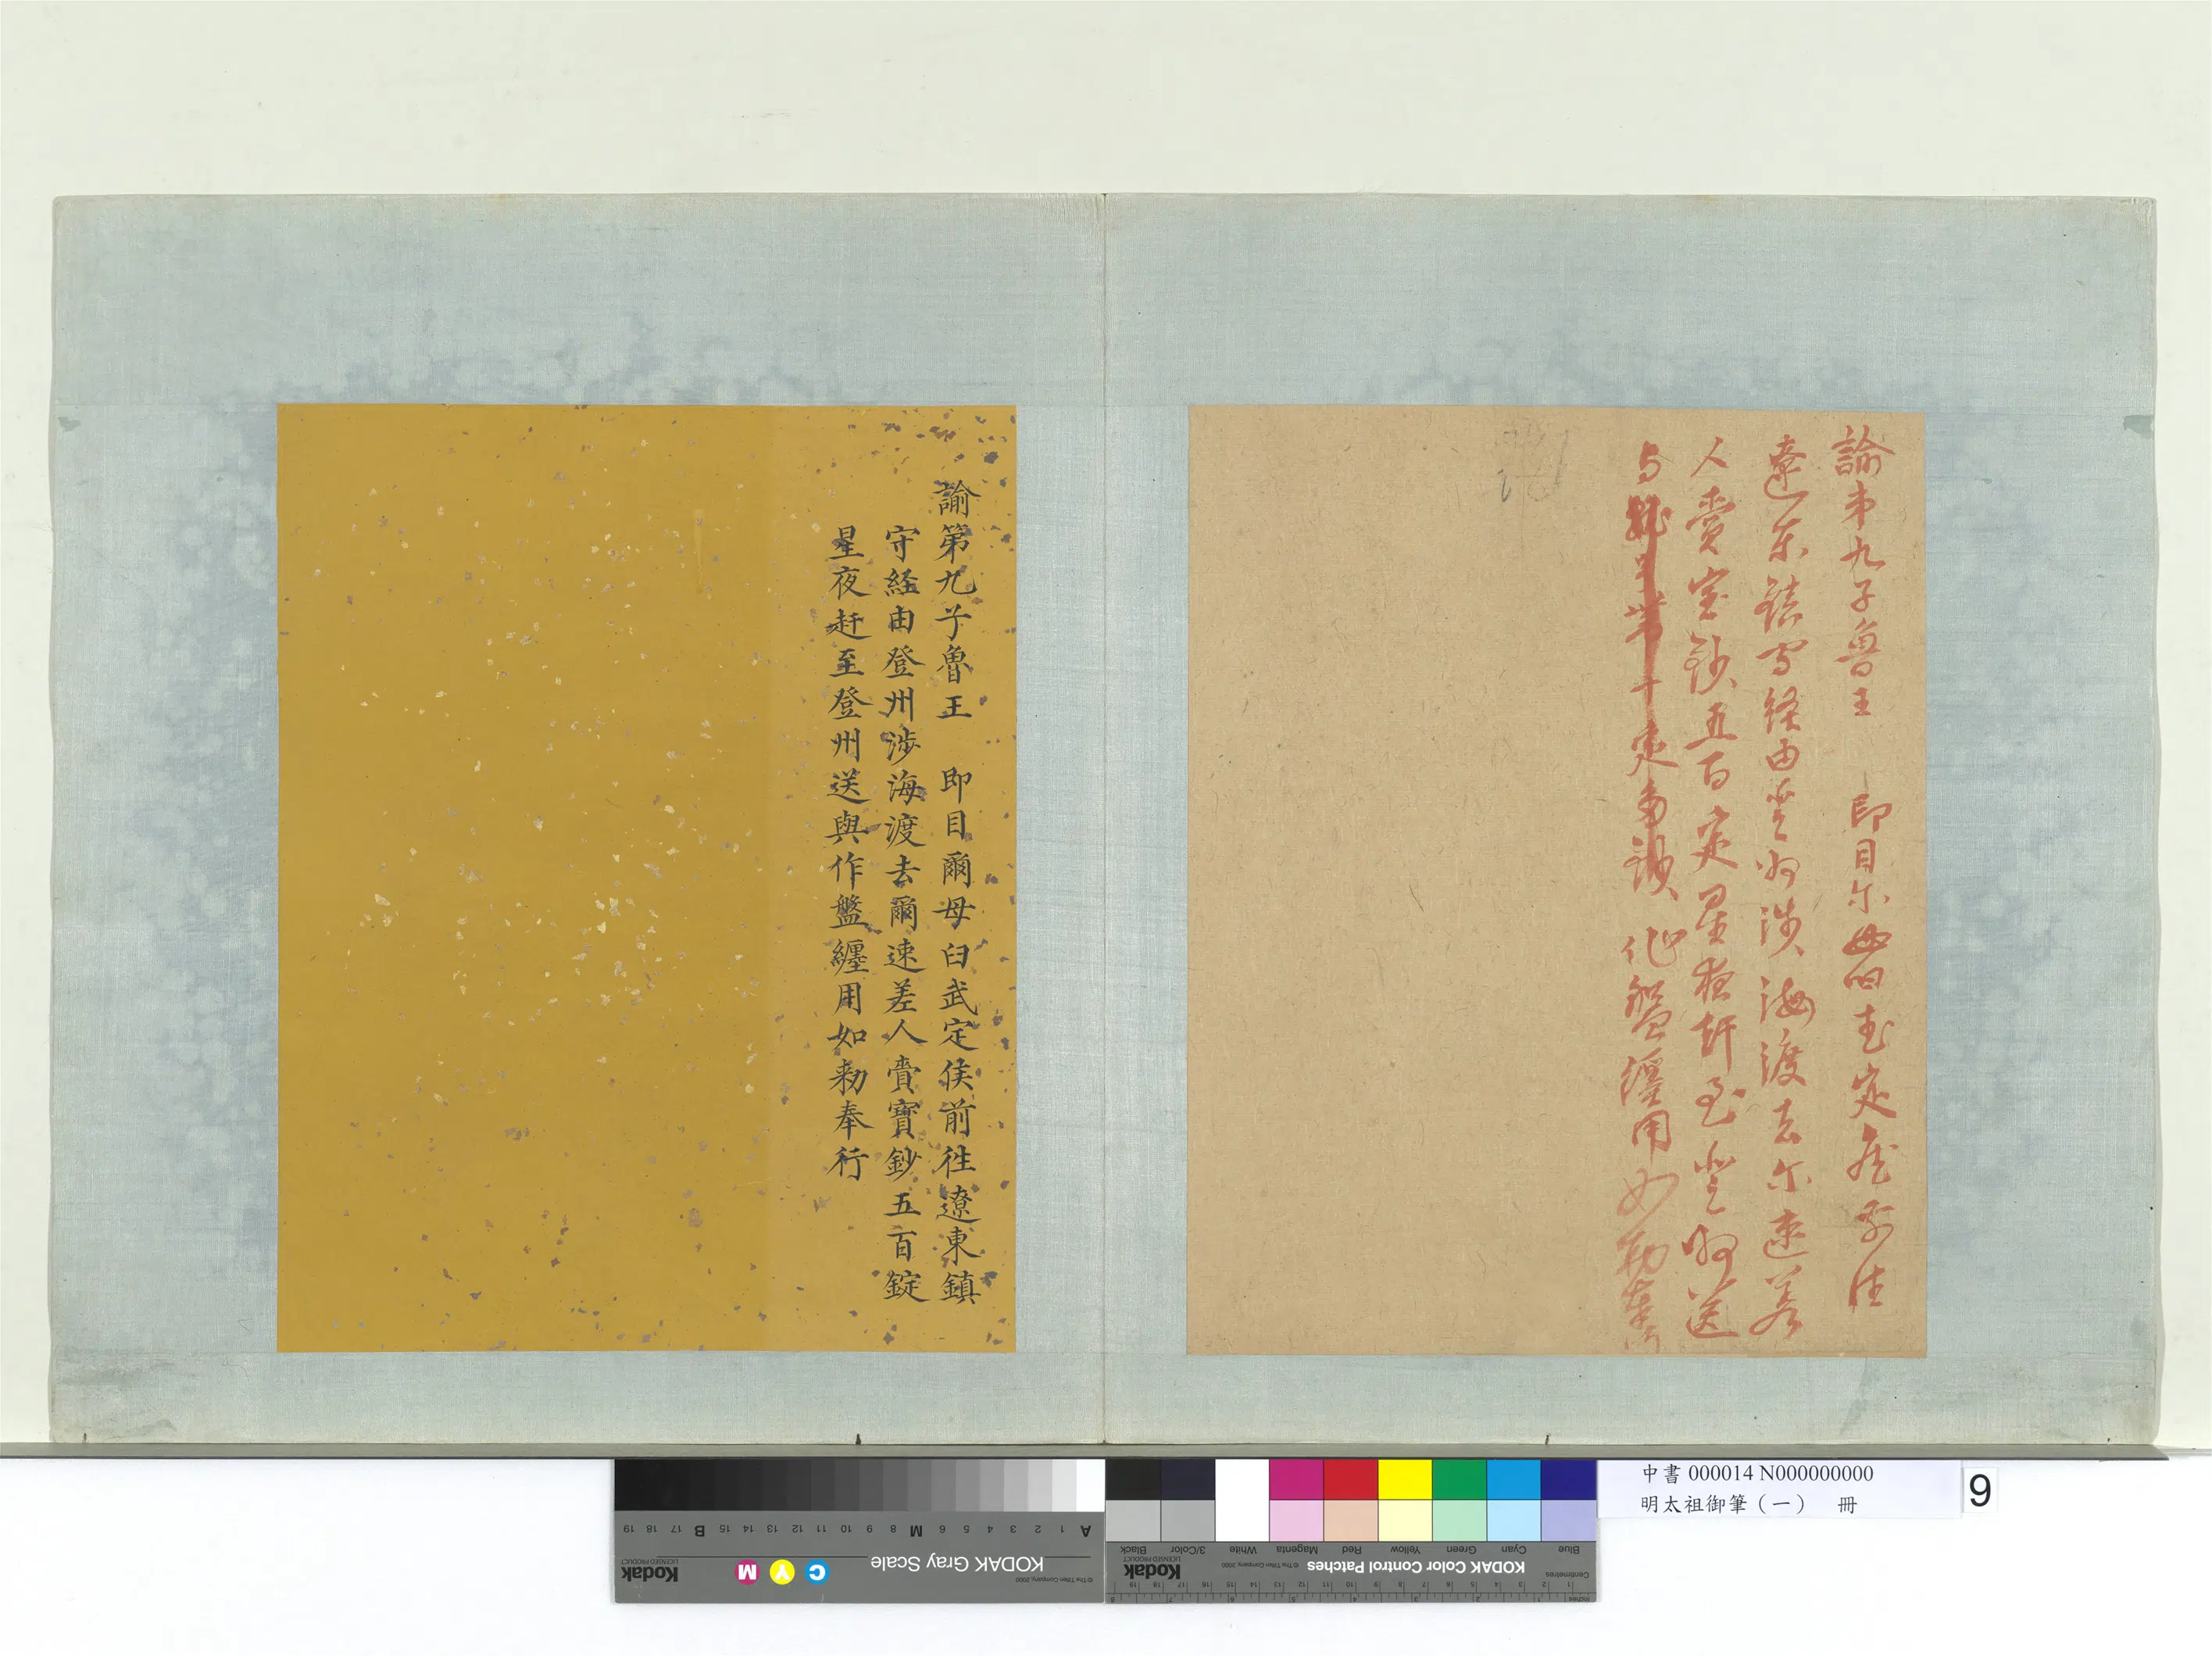 諭弟九子魯王 即目尔母臼武定侯前往
遼东鎮守経由登州涉海渡去尔速差
人賫宝鈔五百定星夜赶至登州送
与 作盤纏用如勅奉行
諭第九子魯王 即目爾母臼武定侯前往遼東鎮
守経由登州涉海渡去爾速差人賫寶鈔五百錠
星夜赶至登州送與作盤纏用如勑奉行
中書 000014 N000000000
明太祖御筆（一） 冊
9
KODAK Gray Scale
Kodak
LICENSED PRODUCT
© The Tiffen Company, 2000
C Y M
A 1 2 3 4 5 6 M 8 9 10 11 12 13 14 15 B 17 18 19
KODAK Color Control Patches
Kodak
LICENSED PRODUCT
© The Tiffen Company, 2000
Blue Cyan Green Yellow Red Magenta White 3/Color Black
Centimetres
Inches